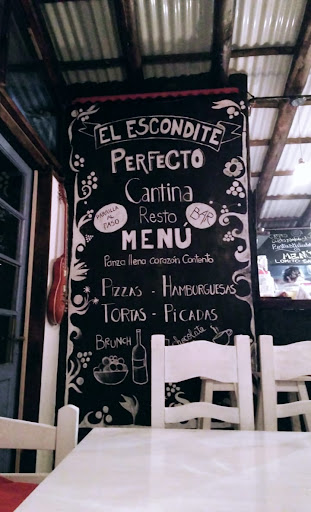 EL ESCONDITE
PERFECTO
Cantina
PARRILLA AL PASO
Resto
BAR
MENÚ
Panza llena corazón contento
PIZZAS - HAMBURGUESAS
TORTAS - PICADAS
BRUNCH
Chocolate
MENU